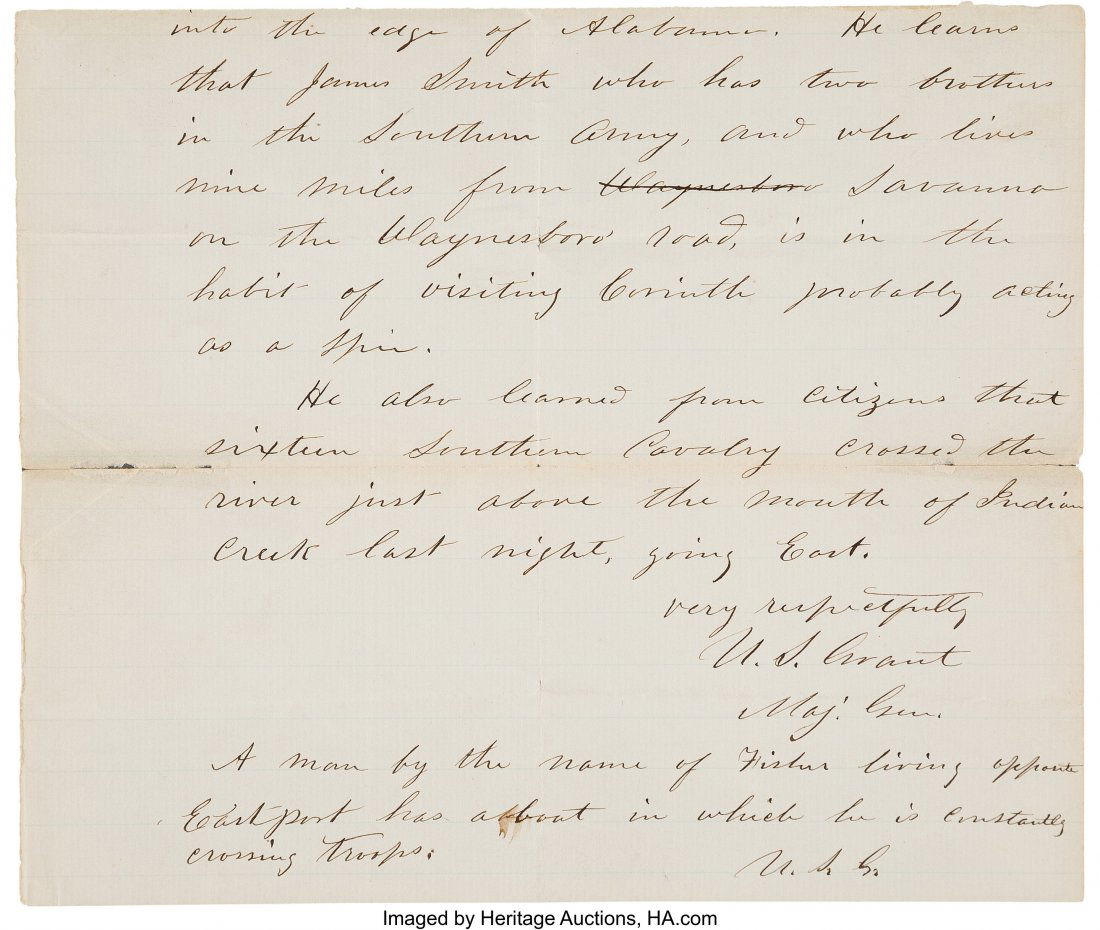 into the edge of Alabama. He learns
that James Smith who has two brothers
in the Southern Army, and who lives
nine miles from Waynesboro Savanna
on the Waynesboro road, is in the
habit of visiting Corinth probably acting
as a spie.
He also learned from citizens that
sixteen Southern Cavalry crossed the
river just above the mouth of Indian
Creek last night, going East.
very respectfully
U. S. Grant
Maj. Gen.
A man by the name of living opposite
Eastport has a boat in which he is constantly
crossing troops.
U. S. G.
Imaged by Heritage Auctions, HA.com